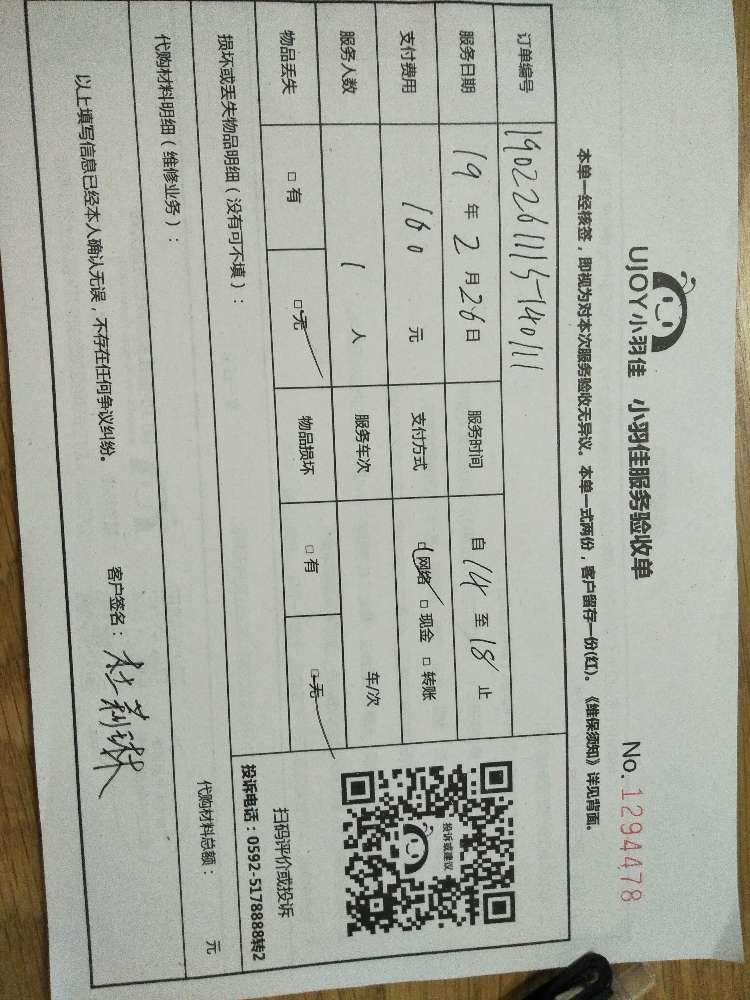 UJOY小羽佳 小羽佳服务验收单 No. 1294478
本单一经核签，即视为对本次服务验收无异议。本单一式两份，客户留存一份(红)。《维保须知》详见背面。
订单编号 190226111540111
服务日期 19年2月26日 服务时间 自14至18止
支付费用 160元 支付方式 □网络 □现金 □转账
服务人数 1人 服务车次 车/次
物品丢失 □有 □无 物品损坏 □有 □无
投诉或建议
扫码评价或投诉
投诉电话：0592-5178888转2
损坏或丢失物品明细（没有可不填）：
代购材料明细（维修业务）： 代购材料总额： 元
以上填写信息已经本人确认无误，不存在任何争议纠纷。 客户签名：